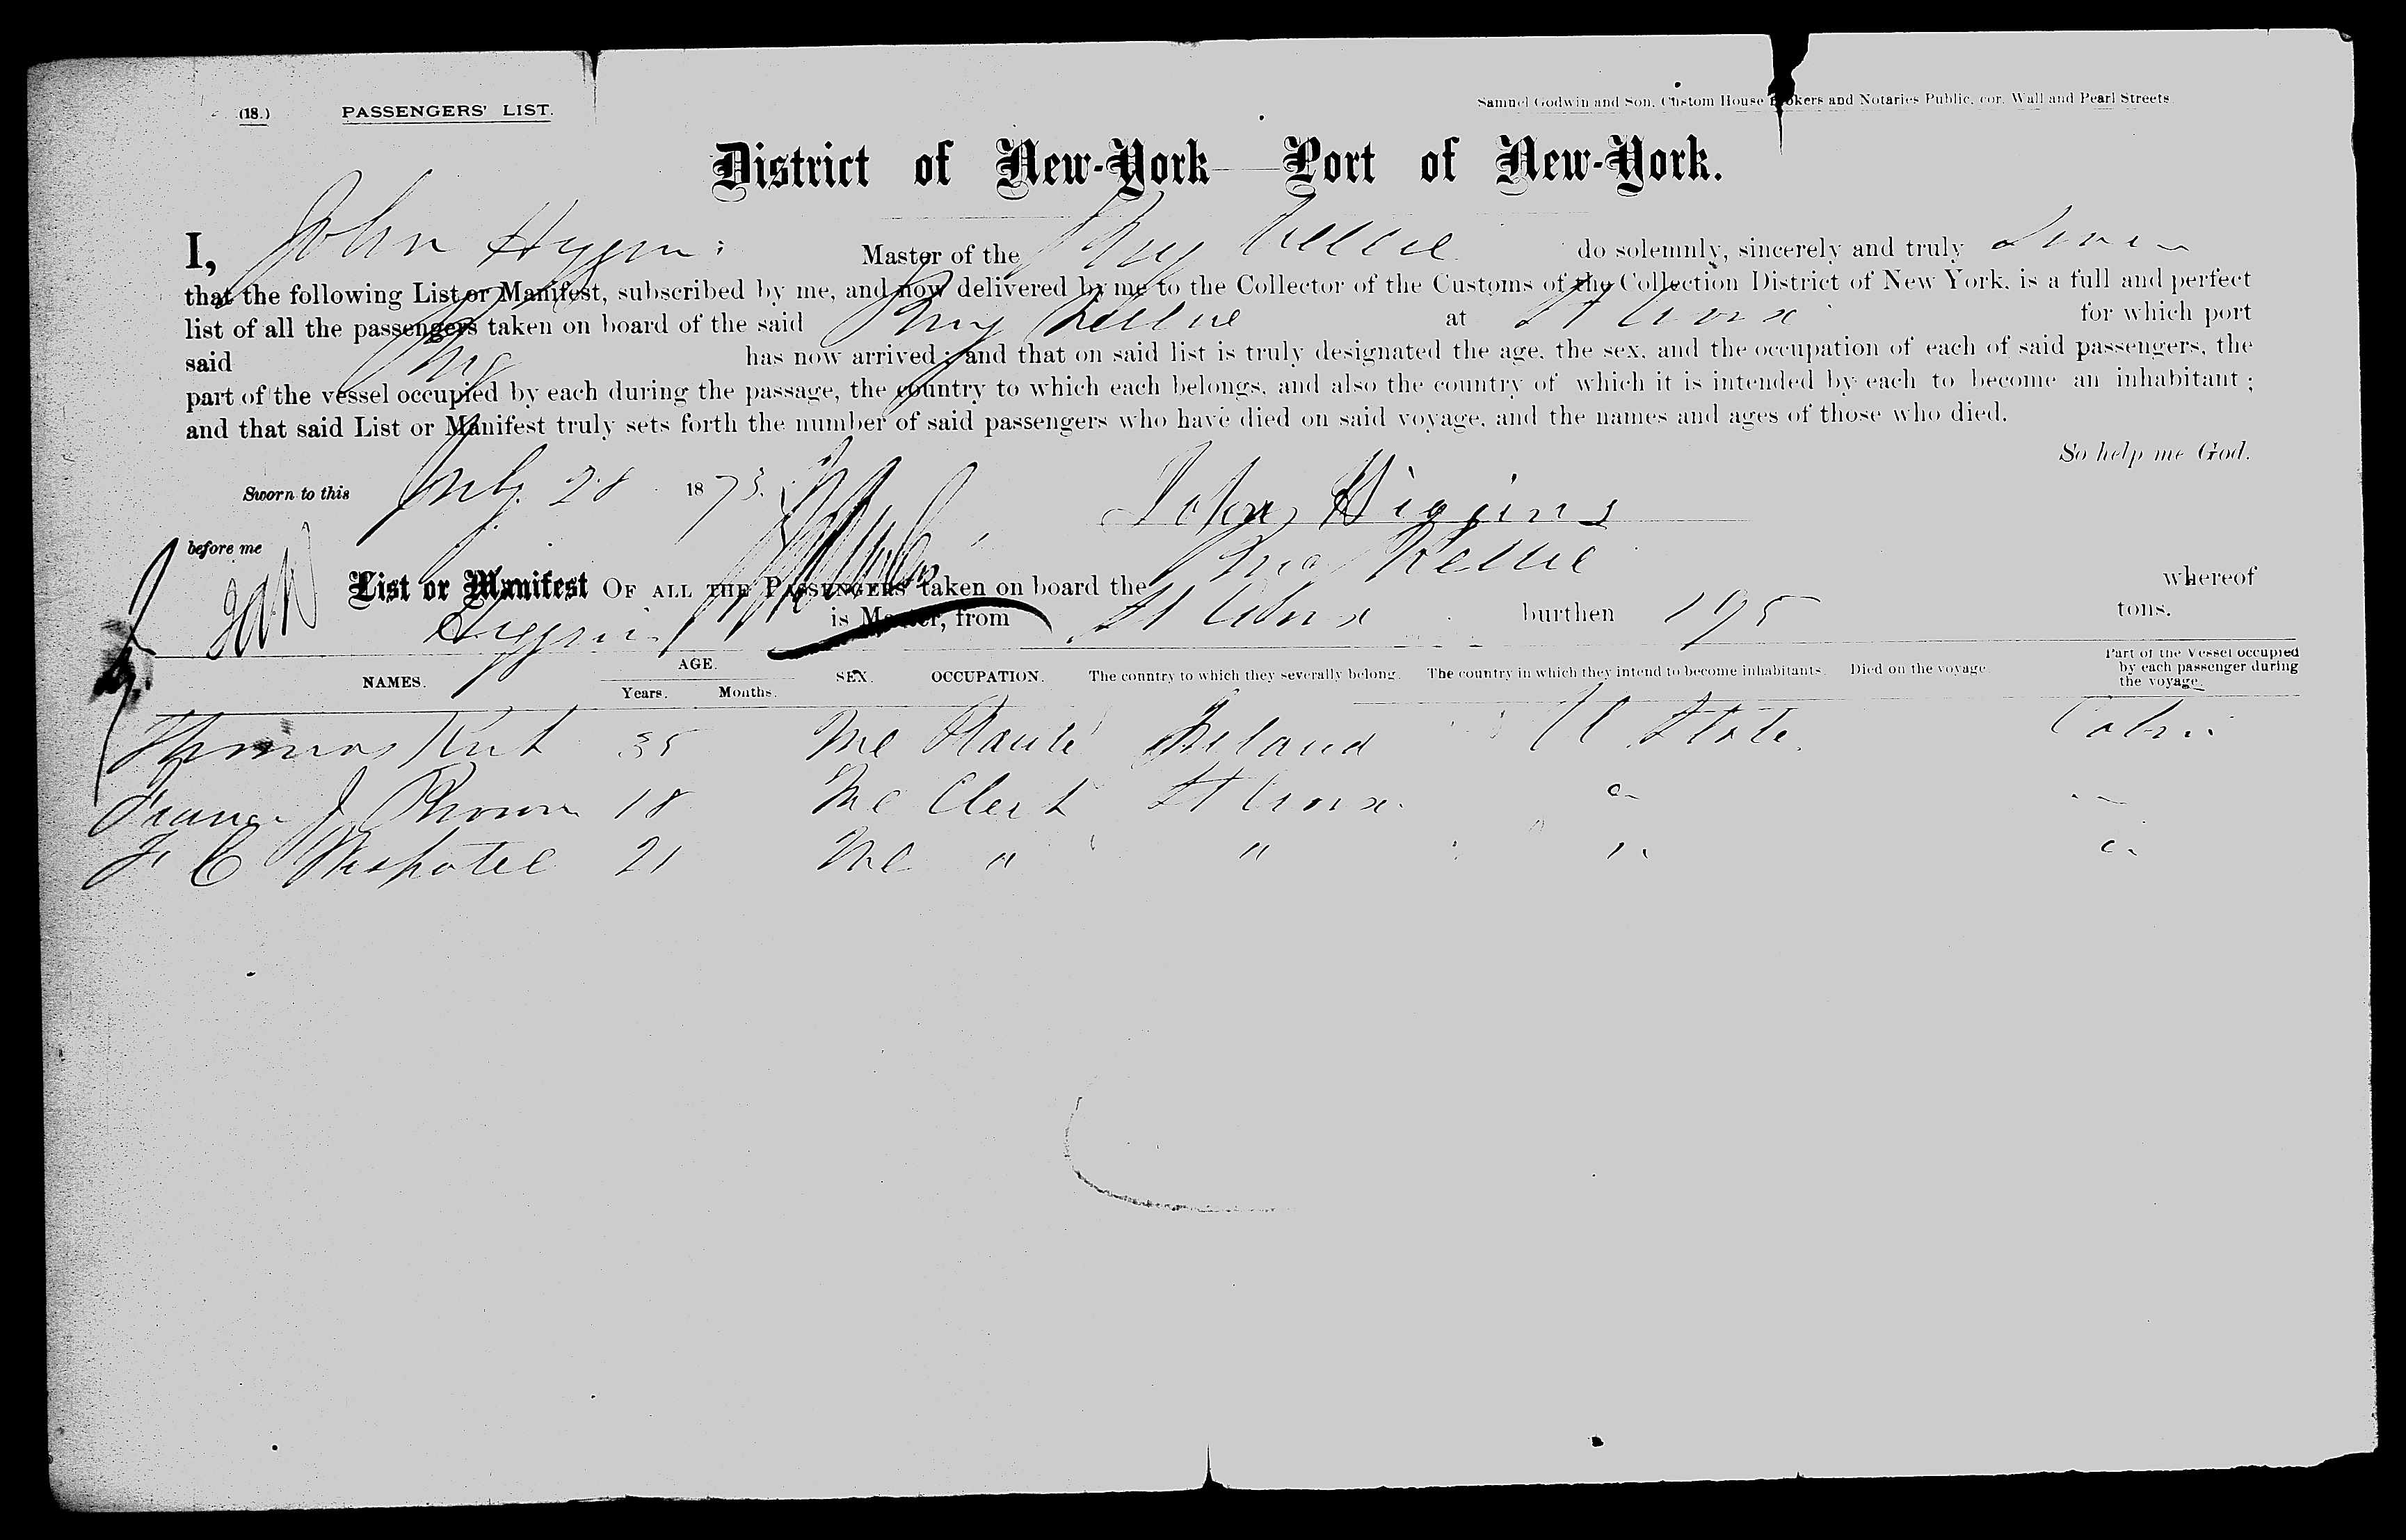 (18.) PASSENGERS' LIST. Samuel Godwin and Son, Custom House Brokers and Notaries Public, cor. Wall and Pearl Streets
District of New-York Port of New-York.
I, John Higgins Master of the Brig Nellie do solemnly, sincerely and truly Swear
that the following List or Manifest, subscribed by me, and now delivered by me to the Collector of the Customs of the Collection District of New York, is a full and perfect
list of all the passengers taken on board of the said Brig Nellie at St Croix for which port
said Brig has now arrived; and that on said list is truly designated the age, the sex, and the occupation of each of said passengers, the
part of the vessel occupied by each during the passage, the country to which each belongs, and also the country of which it is intended by each to become an inhabitant;
and that said List or Manifest truly sets forth the number of said passengers who have died on said voyage, and the names and ages of those who died.
So help me God.
Sworn to this July 28 1873. John Higgins
before me
List or Manifest OF ALL THE PASSENGERS taken on board the Brig Nellie whereof
Higgins is Master, from St Croix burthen 195 tons.
NAMES. AGE. Years. Months. SEX. OCCUPATION. The country to which they severally belong. The country in which they intend to become inhabitants. Died on the voyage. Part of the Vessel occupied by each passenger during the voyage.
Thomas 35 Me Ireland U State. Cabin
J Brown 18 Me Clerk St Croix "
21 Me " " " "